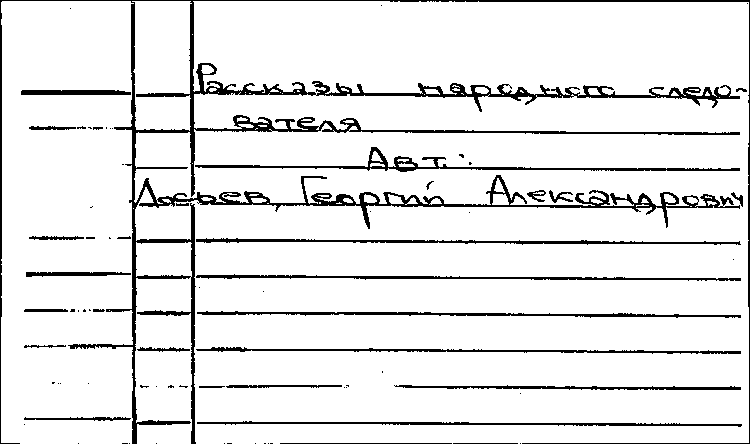 Рассказы народного следо-
вателя
Авт.:
Лосьев, Георгий Александрович